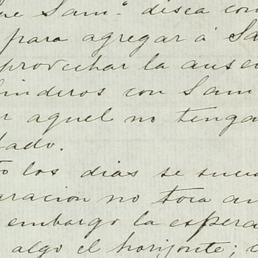 ue Sam." disea con
para agregar á Sa
aprovechar la ausen
linderos con Sam
r aquel no tenga
tado.
o los dias se suce
aracion no toca an
embargo la espera
algo el horizonte;